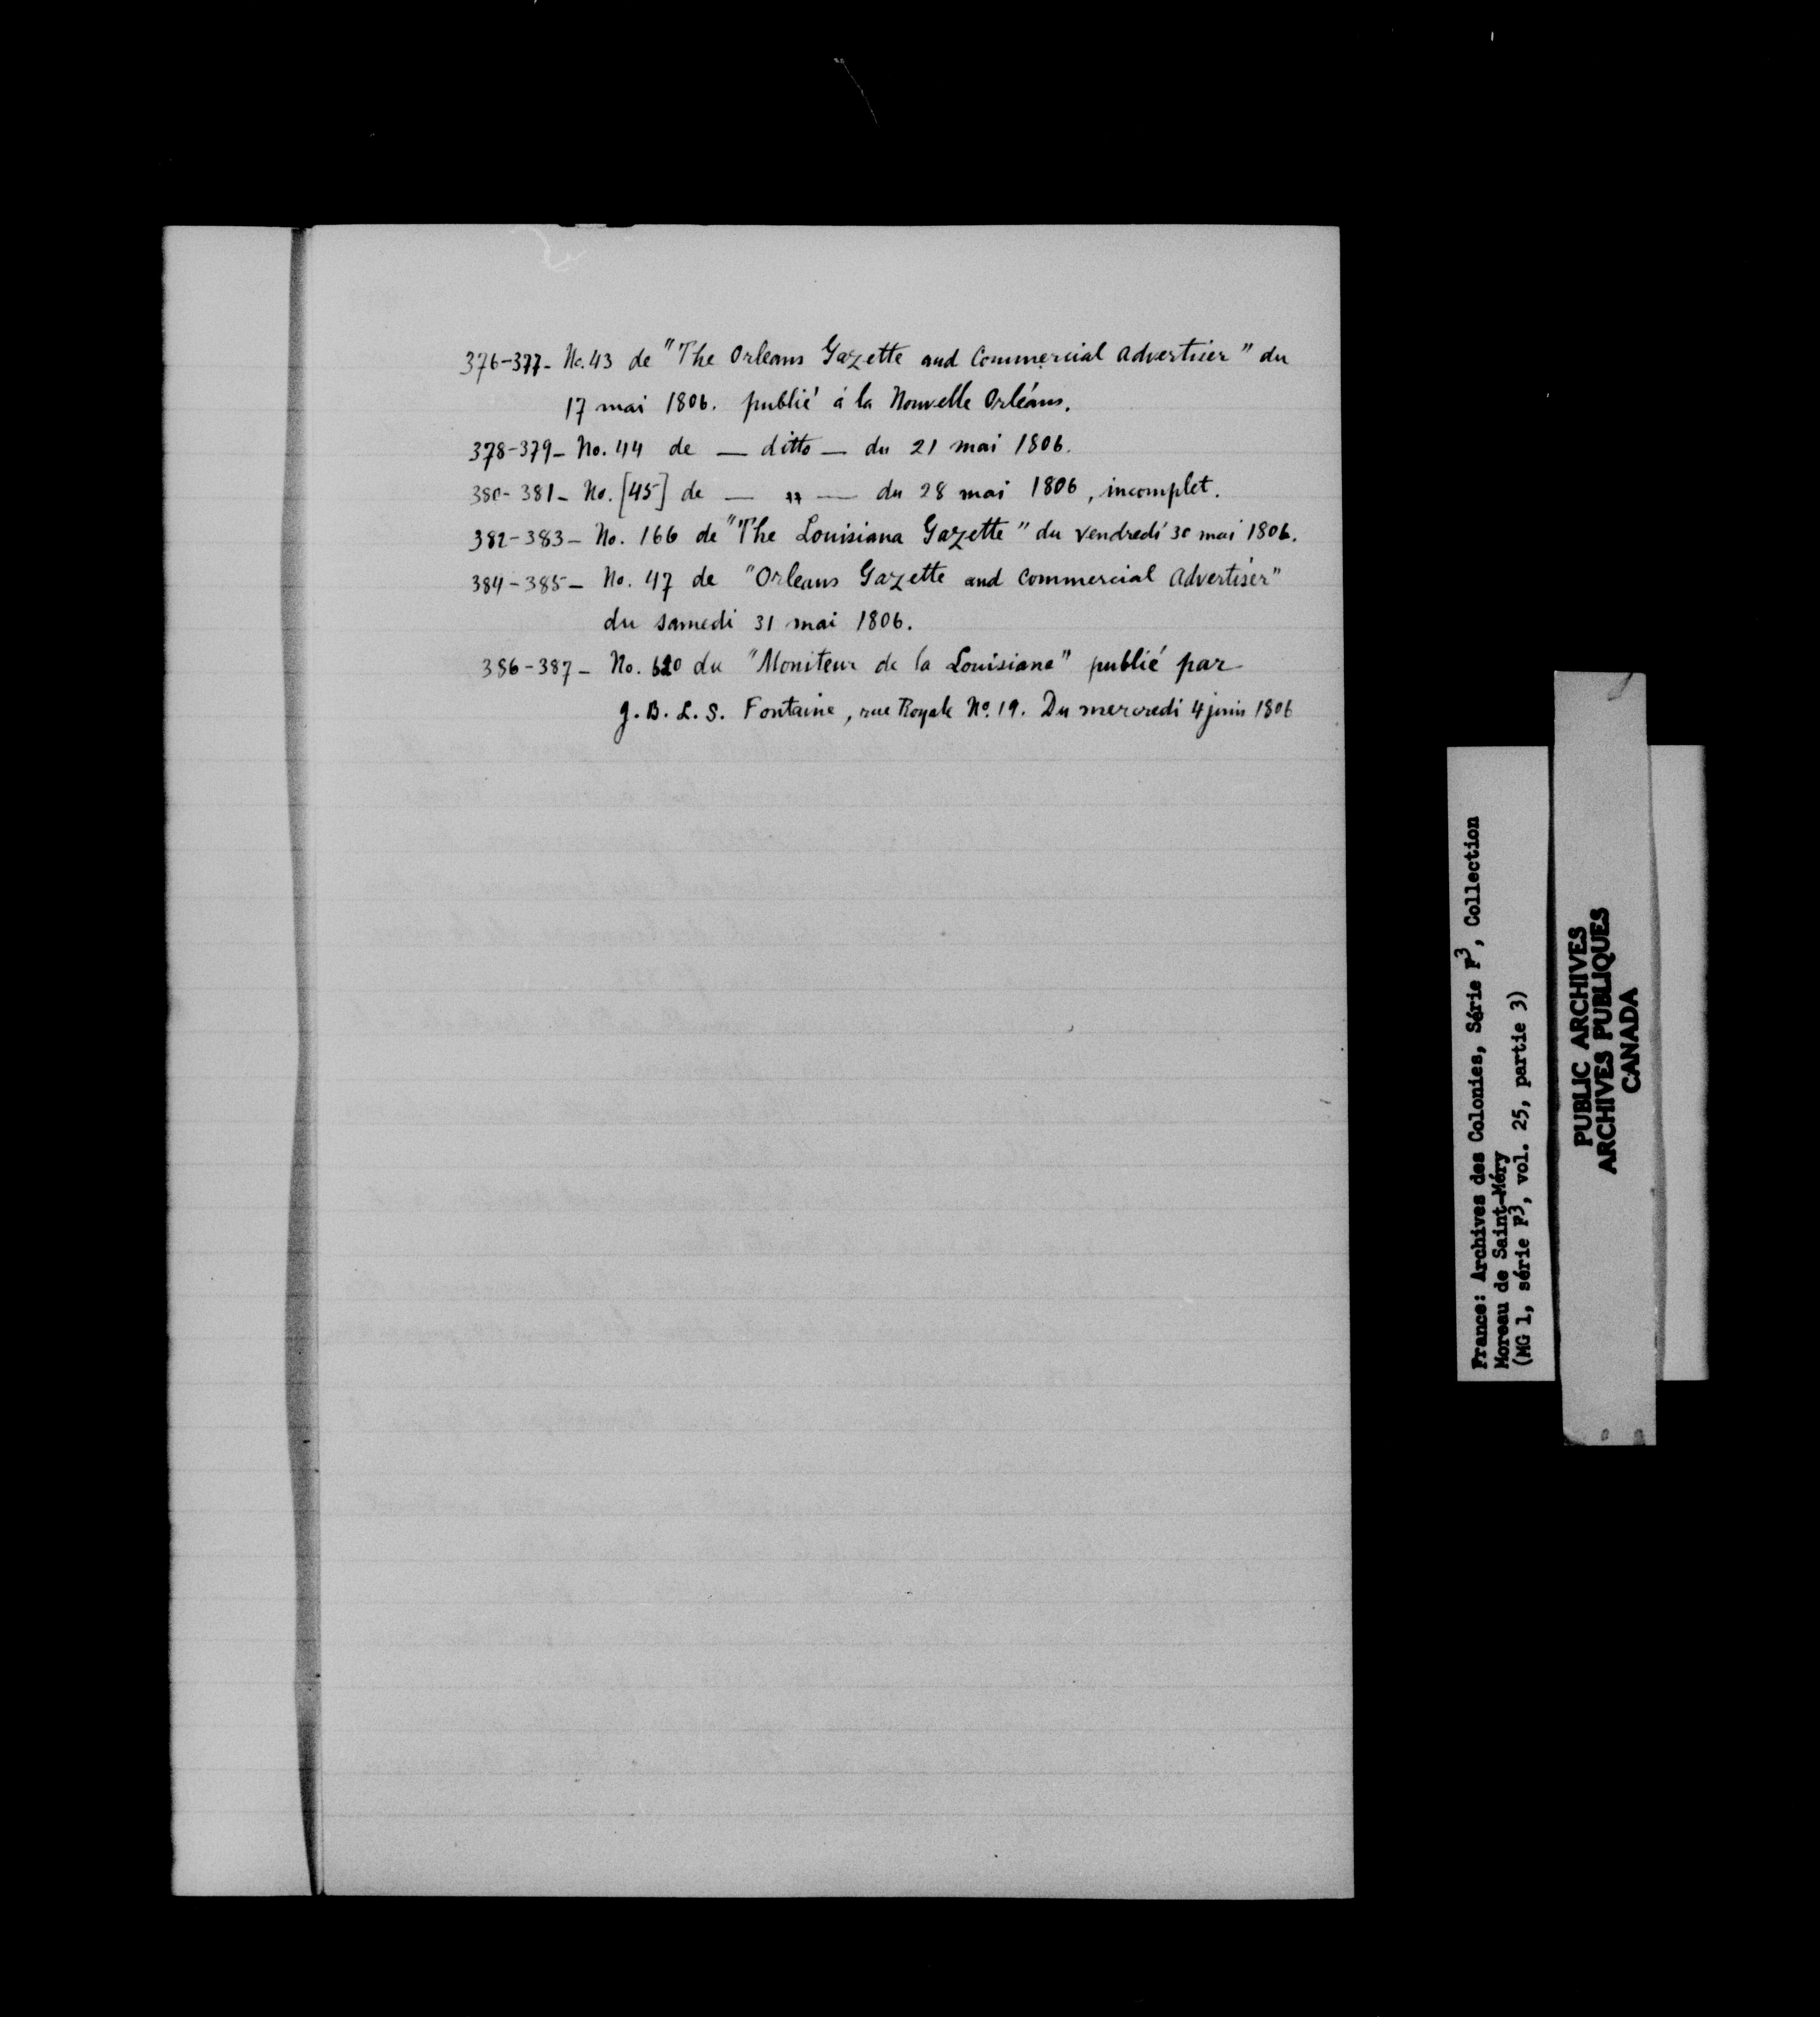 376-377- No. 43 de "The Orleans Gazette and Commercial Advertiser" du
17 mai 1806. publié à la Nouvelle Orléans.
378-379- No. 44 de — ditto — du 21 mai 1806.
380-381- No. [45] de — " — du 28 mai 1806, incomplet.
382-383- No. 166 de "The Louisiana Gazette" du vendredi 30 mai 1806.
384-385- No. 47 de "Orleans Gazette and Commercial Advertiser"
du samedi 31 mai 1806.
386-387- No. 620 du "Moniteur de la Louisiane" publié par
J. B. L. S. Fontaine, rue Royale No. 19. Du mercredi 4 juin 1806
France: Archives des Colonies, Série F3, Collection
Moreau de Saint-Méry
(MG 1, série F3, vol. 25, partie 3)
PUBLIC ARCHIVES
ARCHIVES PUBLIQUES
CANADA